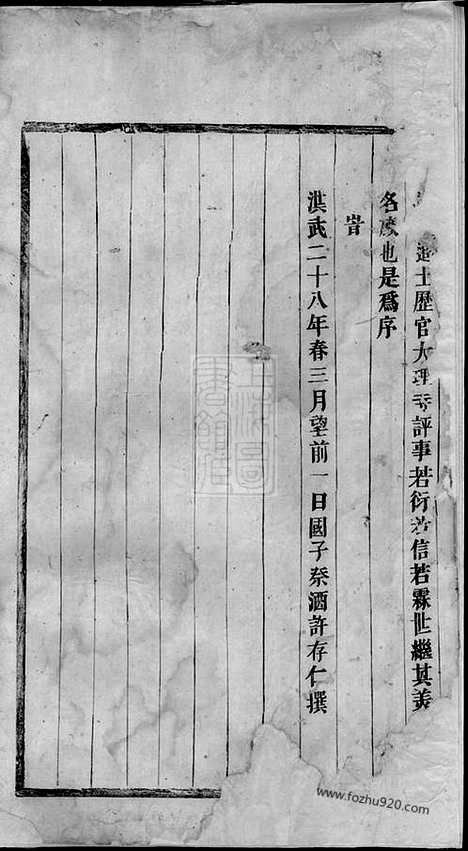 進士歷官大理寺評事若衍若信若霖世繼其美
名度也是爲序
旹
洪武二十八年春三月望前一日國子祭酒許存仁撰
www.fozhu920.com